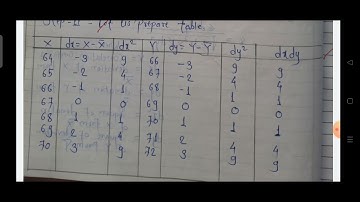 Step-II - Let us prepare table.
X dx = X - X̄ dx² Y dy = Y - Ȳ dy² dxdy
64 -3 9 66 -3 9 9
65 -2 4 67 -2 4 4
66 -1 1 68 -1 1 1
67 0 0 69 0 0 0
68 1 1 70 1 1 1
69 2 4 71 2 4 4
70 3 9 72 3 9 9